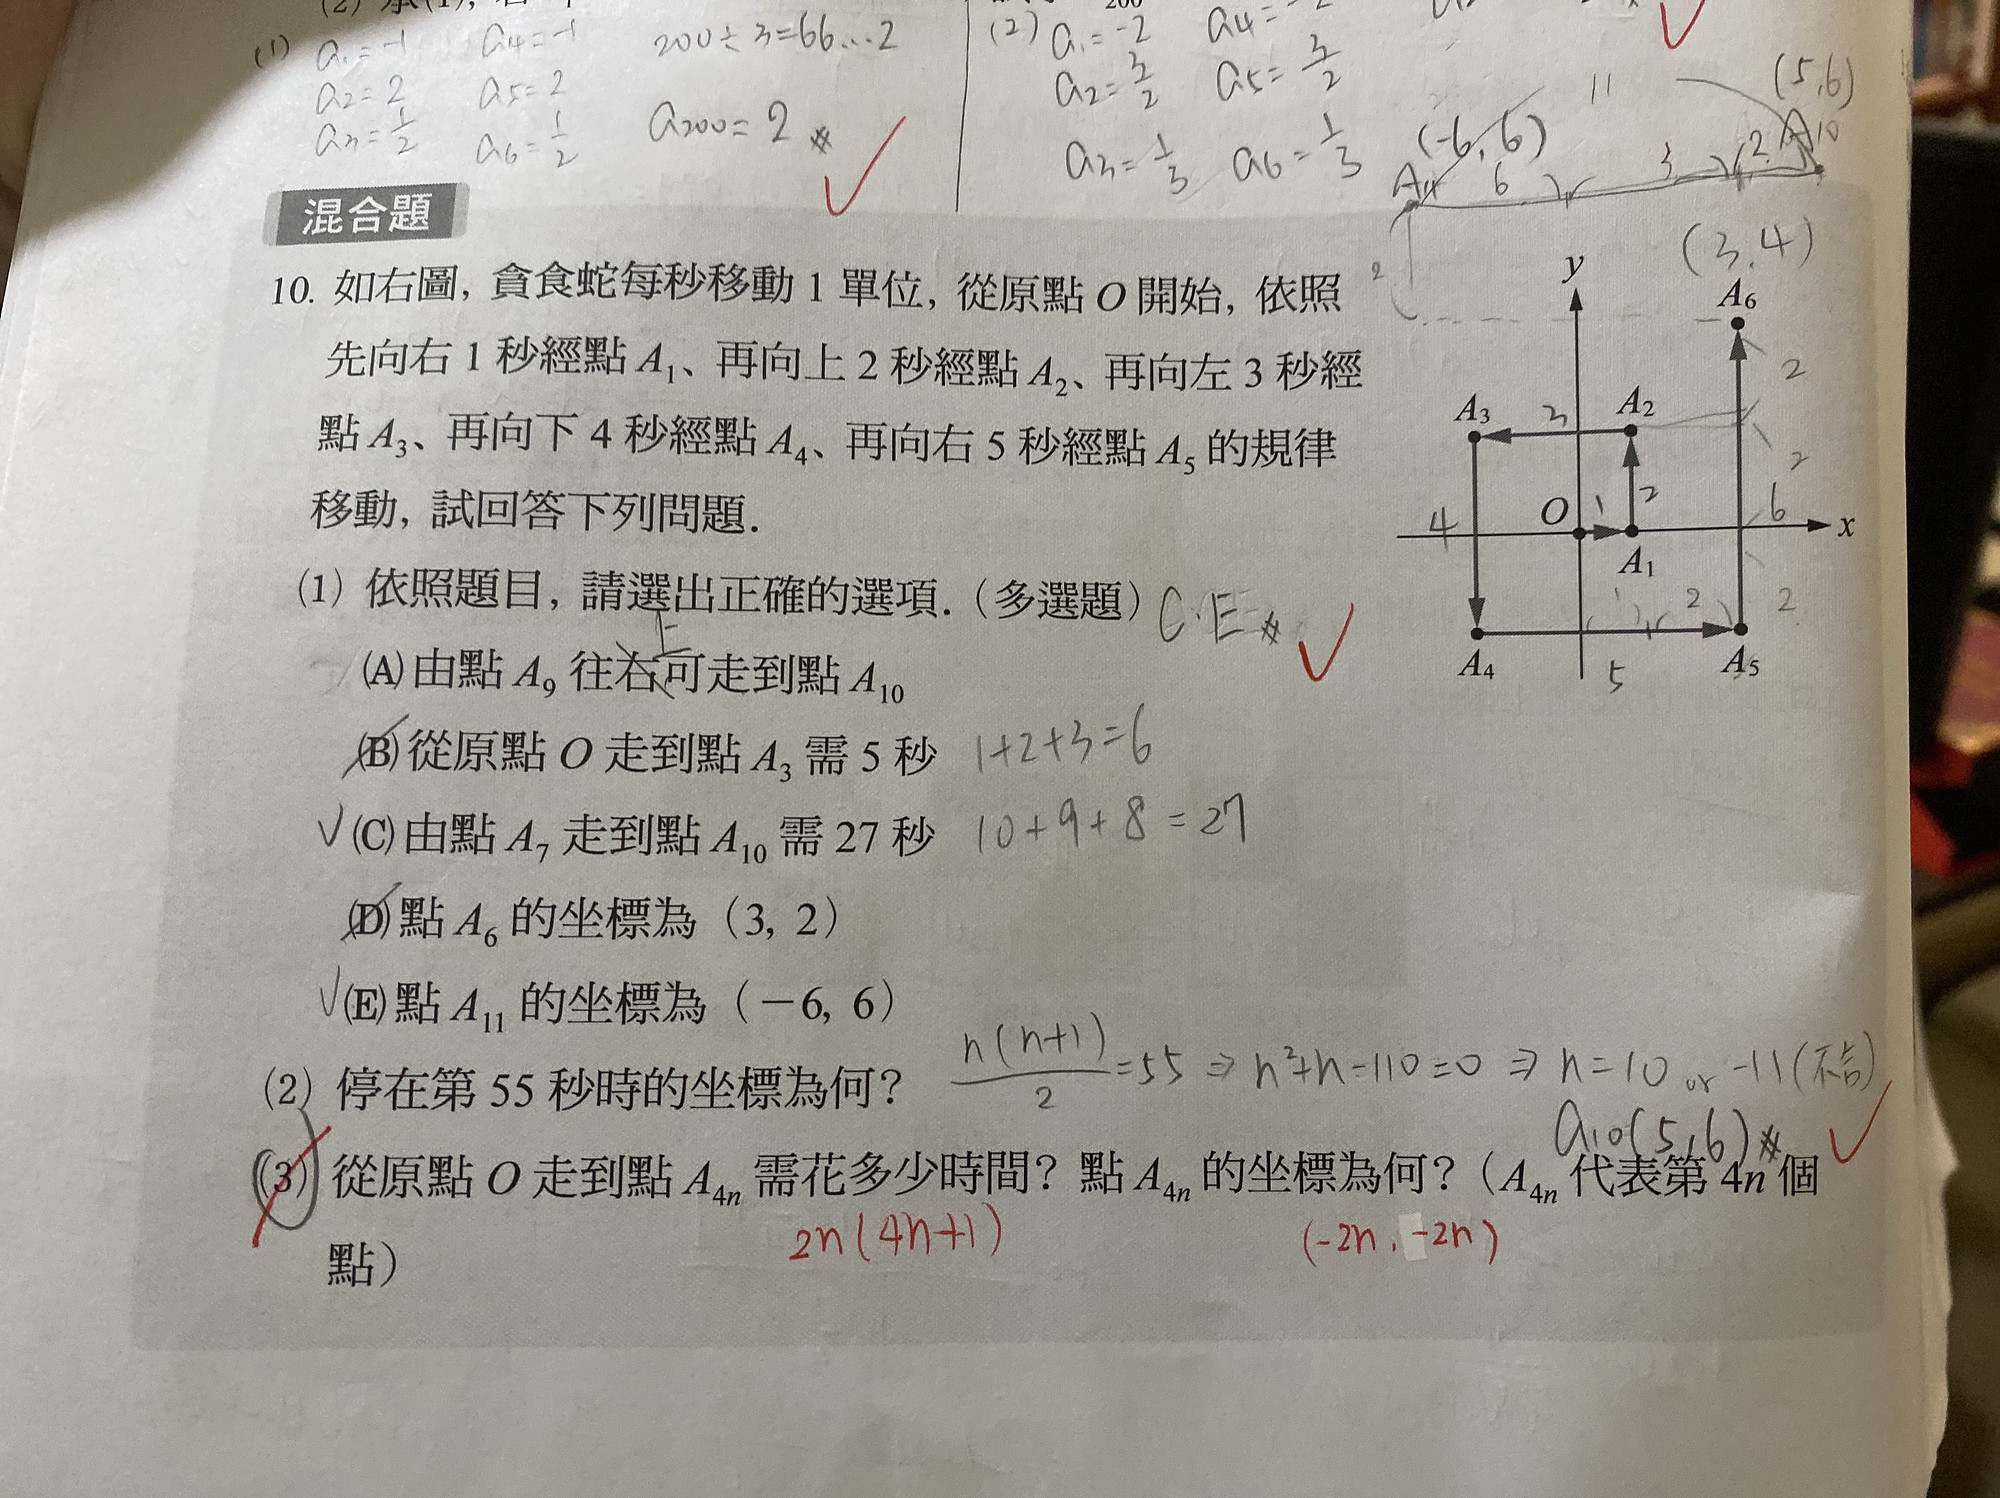 (1) a₁=-1 a₄=-1 200÷3=66…2
a₂=2 a₅=2
a₃=1/2 a₆=1/2 a₂₀₀=2 #
(2) a₁=-2
a₂=3/2 a₅=3/2
a₃=1/3 a₆=1/3
11 (5,6)
(-6,6) A10
6 3 2
混合題
10. 如右圖, 貪食蛇每秒移動 1 單位, 從原點 O 開始, 依照
先向右 1 秒經點 A₁、再向上 2 秒經點 A₂、再向左 3 秒經
點 A₃、再向下 4 秒經點 A₄、再向右 5 秒經點 A₅ 的規律
移動, 試回答下列問題.
(3,4)
y A₆
2
2
A₃ 3 A₂
2
4 O 1 2 6 x
A₁
1 2 2
A₄ 5 A₅
(1) 依照題目, 請選出正確的選項. (多選題) C.E #
上
(A) 由點 A₉ 往右可走到點 A₁₀
(B) 從原點 O 走到點 A₃ 需 5 秒 1+2+3=6
(C) 由點 A₇ 走到點 A₁₀ 需 27 秒 10+9+8=27
(D) 點 A₆ 的坐標為 (3, 2)
(E) 點 A₁₁ 的坐標為 (−6, 6)
(2) 停在第 55 秒時的坐標為何? n(n+1)/2=55 ⇒ n²+n-110=0 ⇒ n=10 or -11(不合)
a₁₀(5,6) #
(3) 從原點 O 走到點 A₄ₙ 需花多少時間? 點 A₄ₙ 的坐標為何? (A₄ₙ 代表第 4n 個
點)
2n(4n+1) (-2n, -2n)